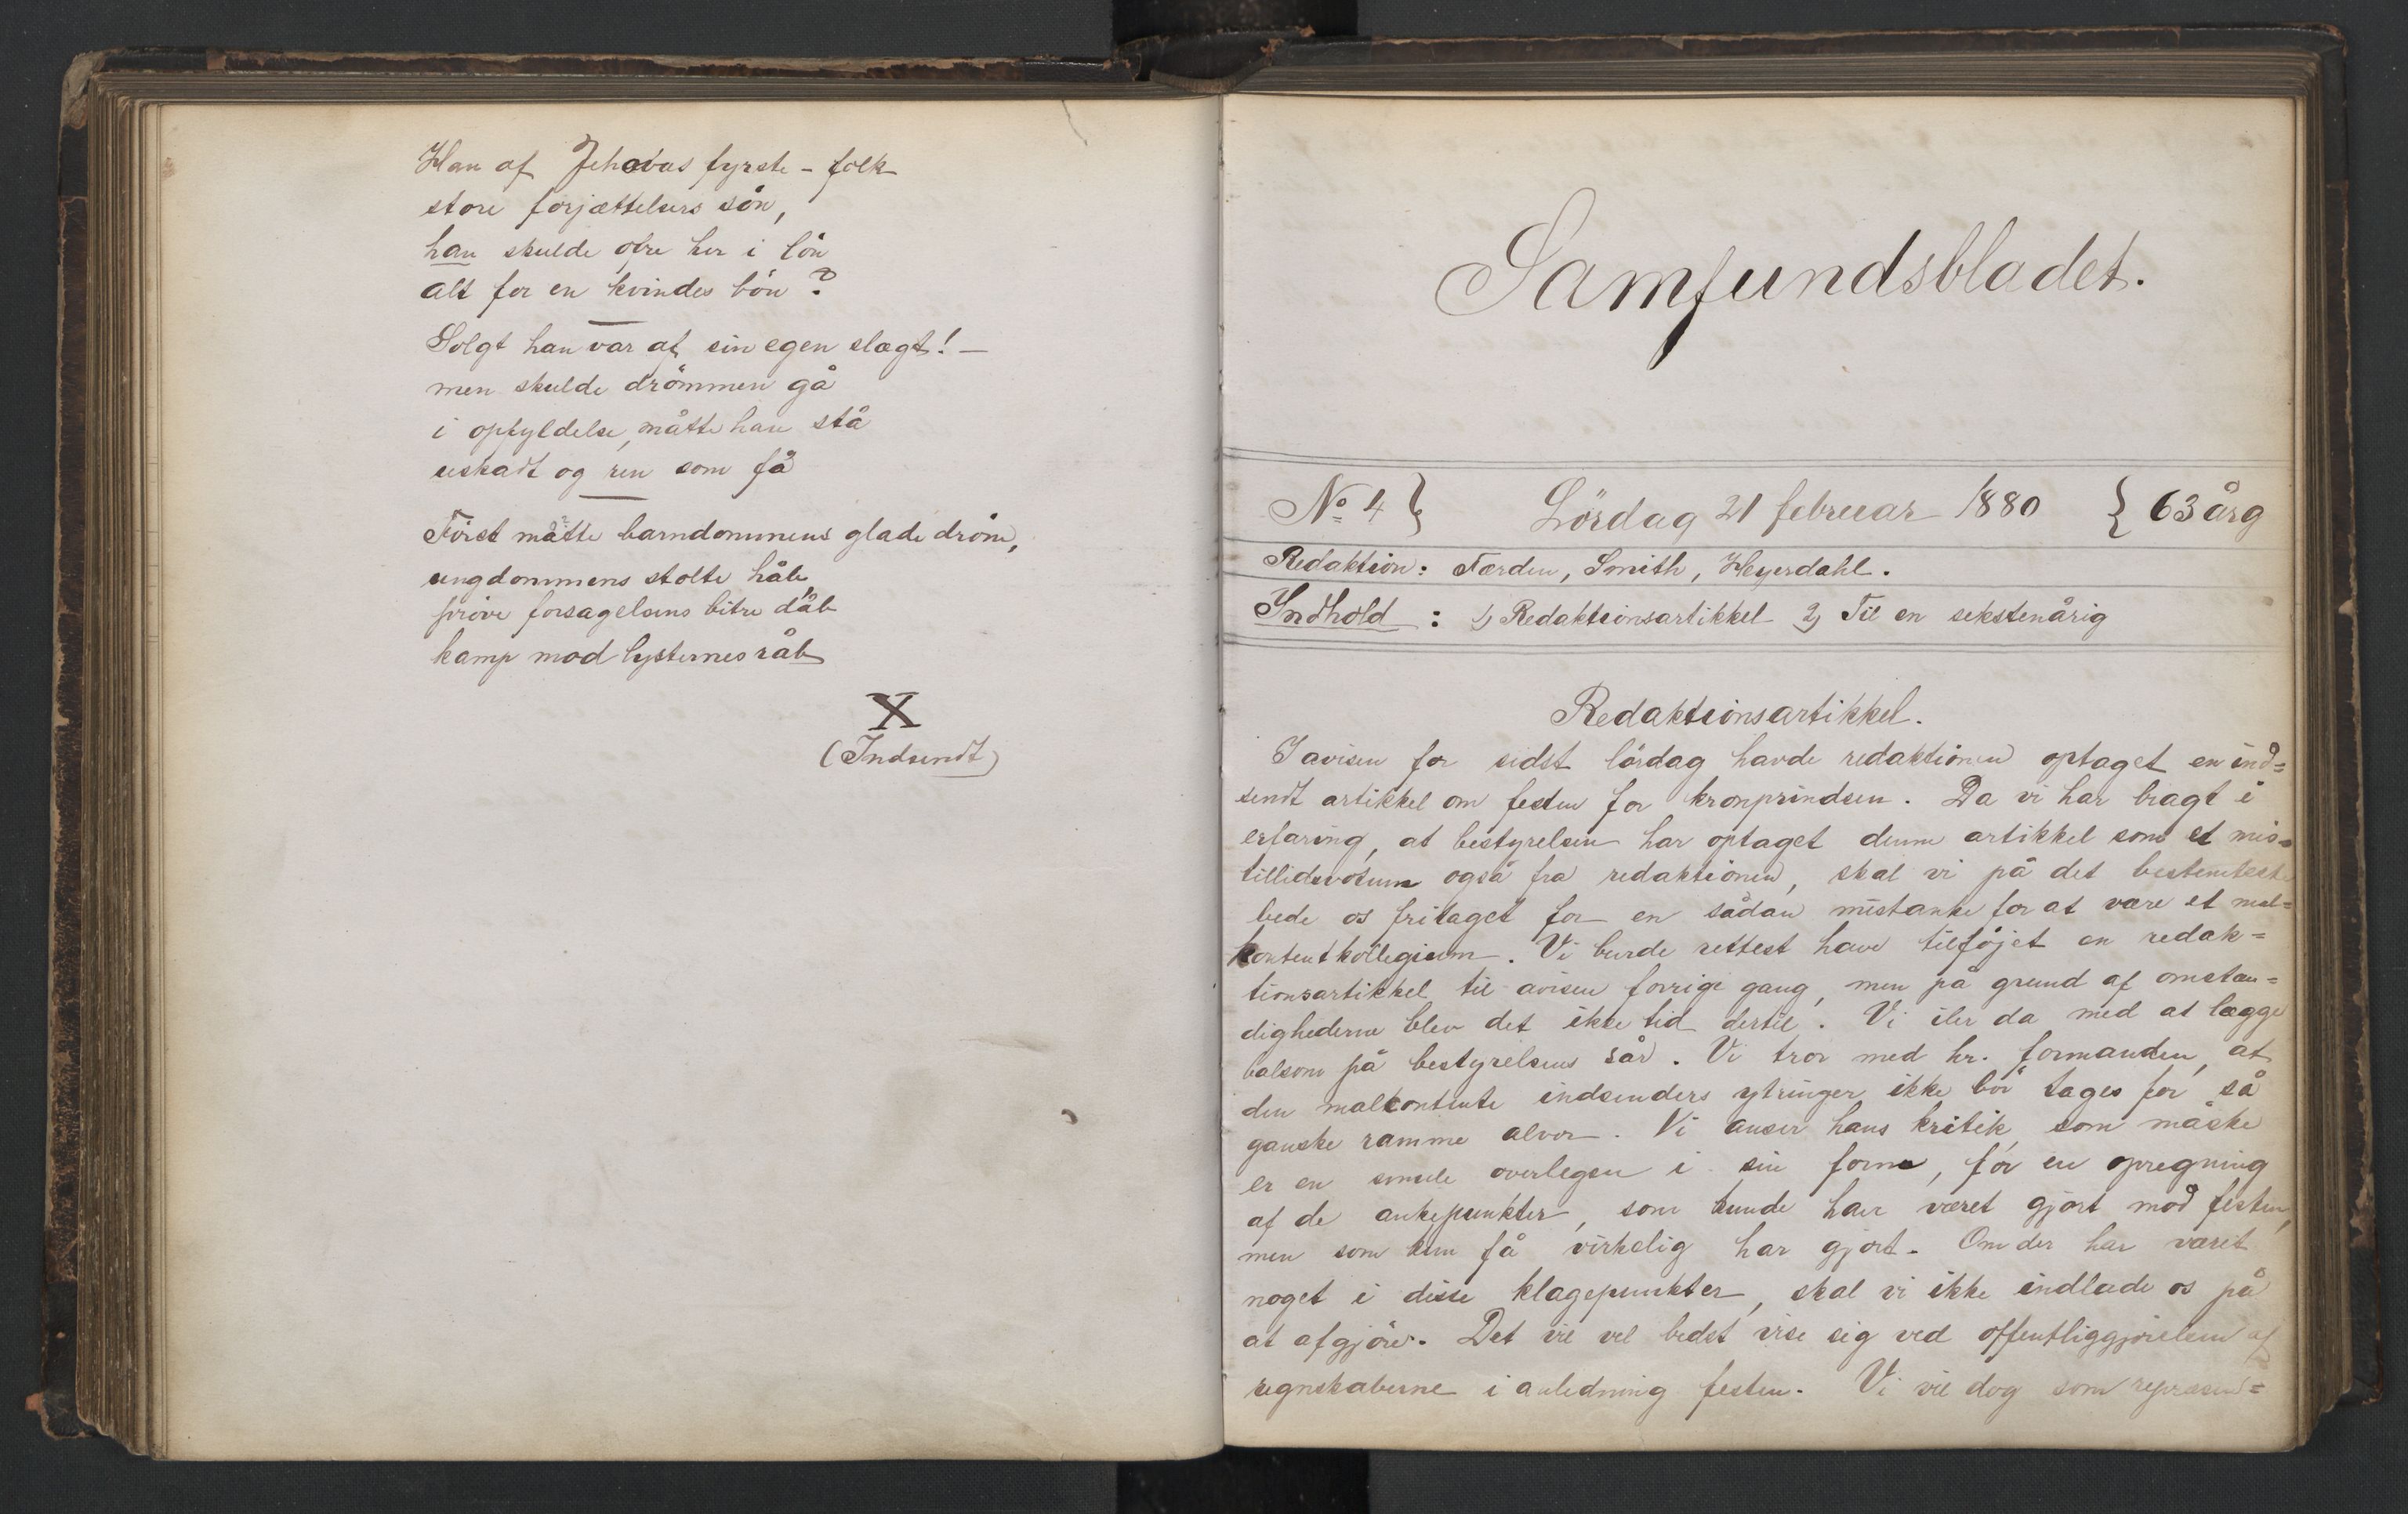 Han af Jehovas fyrste-folk
store forjættelsers sön,
han skulde ofre her i lön
alt for en kvindes bön?
Solgt han var af sin egen slægt! -
men skulde drömmen gå
i opfyldelse, måtte han stå
uskadt og ren som få
Först måtte barndommens glade dröm,
ungdommens stolte håb,
pröve forsagelsens bitre dåb
kamp mod lysternes råb
X
(Indsendt)
Samfundsbladet.
No 4} Lördag 21 februar 1880 {63 årg
Redaktion: Færden, Smith, Heyerdahl.
Indhold: 1) Redaktionsartikkel 2) Til en sekstenårig
Redaktionsartikkel.
I avisen for sidst lördag havde redaktionen optaget en ind=
sendt artikkel om festen for kronprindsen. Da vi har bragt i
erfaring, at bestyrelsen har optaget denne artikkel som et mis=
tillidsvotum også fra redaktionen, skal vi på det bestemteste
bede os fritaget for en sådan mistanke for at være et mal=
kontentkollegium. Vi burde rettest have tilföjet en redak=
tionsartikkel til avisen forrige gang, men på grund af omstæn=
dighederne blev det ikke tid dertil. Vi iler da med at lægge
balsom på bestyrelsens sår. Vi tror med hr. formanden, at
den malkontente indsenders ytringer ikke bör tages for så
ganske ramme alvor. Vi anser hans kritik, som måske
er en smule overlegen i sin form, for en opregning
af de ankepunkter, som kunde har været gjört mod festen,
men som kun få virkelig har gjört. Om der har været
noget i disse klagepunkter, skal vi ikke indlade os på
at afgjöre. Det vil vel bedst vise sig ved offentliggjörelsen af
regnskaberne i anledning festen. Vi vil dog som repræsen=